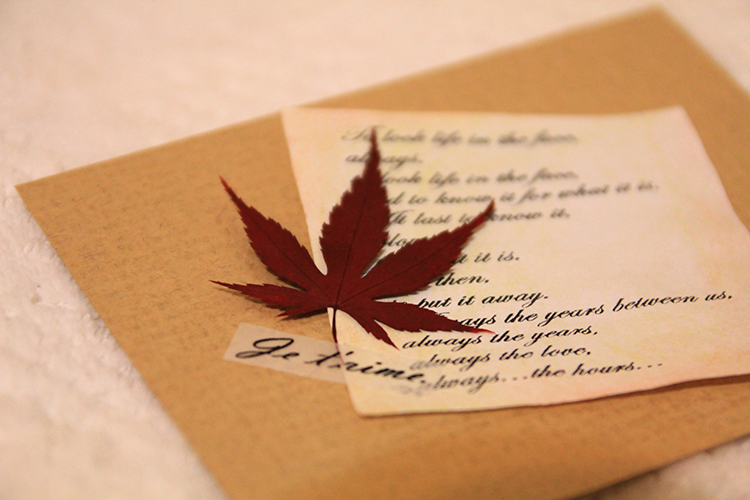 To look life in the face,
always,
look life in the face,
to know it for what it is.
At last to know it,
it is.
then,
put it away.
the years between us,
always the years,
always the love,
always...the hours...
Je t'aime